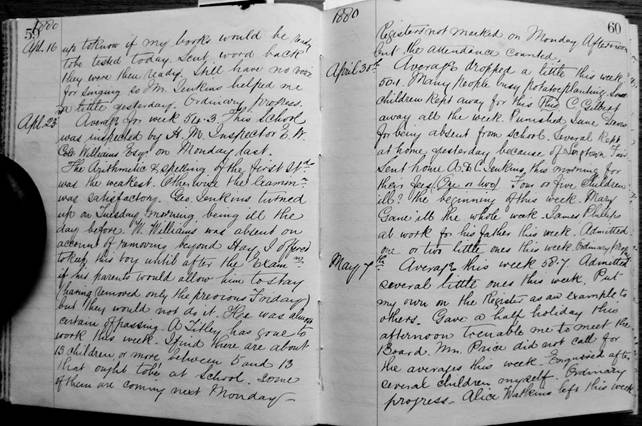 59
1880
Apl. 16 up to know if my books would be ready
to be tested today. Sent word back
they were then ready. Still have no room
for singing so Mr Jenkins helped me
a little yesterday. Ordinary progress.
Apl. 23 Average for week 60.3. This School
was inspected by H. M. Inspector E. W.
Colt Williams Esqr on Monday last.
The Arithmetic & spelling of the first Stds
was the weakest. Otherwise the Examn
was satisfactory. Geo. Jenkins turned
up on Tuesday morning being ill the
day before. W. Williams was absent on
account of removing beyond Hay, I offered
to keep his boy until after the Exam
if his parents would allow him to stay
having removed only the previous
but they would not do it. He was always
certain of passing. A Titley has gone to
work this week. I find there are about
13 children or more, between 5 and 13
that ought to be at School. Some
of them are coming next Monday
60
1880
Registers not marked on Monday Afternoon
but the attendance counted.
April 30th Average dropped a little this week
50.1. Many people busy potatoe planting. Some
children kept away for this. C Gilhap
away all the week. Punished Jane
for being absent from school. Several kept
at home yesterday because of Fair.
Sent home A. & C. Jenkins, this morning for
their fees (One or two). Four or five children
ill? the beginning of this week. Mary
Gane ill the whole week. James Philips
at work for his father this week. Admitted
one or two little ones this week. Ordinary Prog.
May 7th Average this week 58.7. Admitted
several little ones this week. Put
my own on the Register as an example to
others. Gave a half holiday this
afternoon to enable me to meet the
Board. Mr. Price did not call for
the averages this week. Enquired after
several children myself. Ordinary
progress. Alice Watkins left this week